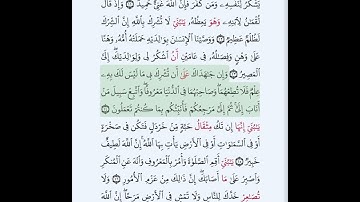 يَشْكُرُ لِنَفْسِهِۦ ۖ وَمَن كَفَرَ فَإِنَّ ٱللَّهَ غَنِىٌّ حَمِيدٌ ١٢ وَإِذْ قَالَ
لُقْمَٰنُ لِٱبْنِهِۦ وَهُوَ يَعِظُهُۥ يَٰبُنَىَّ لَا تُشْرِكْ بِٱللَّهِ ۖ إِنَّ ٱلشِّرْكَ
لَظُلْمٌ عَظِيمٌ ١٣ وَوَصَّيْنَا ٱلْإِنسَٰنَ بِوَٰلِدَيْهِ حَمَلَتْهُ أُمُّهُۥ وَهْنًا
عَلَىٰ وَهْنٍ وَفِصَٰلُهُۥ فِى عَامَيْنِ أَنِ ٱشْكُرْ لِى وَلِوَٰلِدَيْكَ إِلَىَّ
ٱلْمَصِيرُ ١٤ وَإِن جَٰهَدَاكَ عَلَىٰٓ أَن تُشْرِكَ بِى مَا لَيْسَ لَكَ بِهِۦ
عِلْمٌ فَلَا تُطِعْهُمَا ۖ وَصَاحِبْهُمَا فِى ٱلدُّنْيَا مَعْرُوفًا ۖ وَٱتَّبِعْ سَبِيلَ مَنْ
أَنَابَ إِلَىَّ ۚ ثُمَّ إِلَىَّ مَرْجِعُكُمْ فَأُنَبِّئُكُم بِمَا كُنتُمْ تَعْمَلُونَ ١٥
يَٰبُنَىَّ إِنَّهَآ إِن تَكُ مِثْقَالَ حَبَّةٍ مِّنْ خَرْدَلٍ فَتَكُن فِى صَخْرَةٍ
أَوْ فِى ٱلسَّمَٰوَٰتِ أَوْ فِى ٱلْأَرْضِ يَأْتِ بِهَا ٱللَّهُ ۚ إِنَّ ٱللَّهَ لَطِيفٌ
خَبِيرٌ ١٦ يَٰبُنَىَّ أَقِمِ ٱلصَّلَوٰةَ وَأْمُرْ بِٱلْمَعْرُوفِ وَٱنْهَ عَنِ ٱلْمُنكَرِ
وَٱصْبِرْ عَلَىٰ مَآ أَصَابَكَ ۖ إِنَّ ذَٰلِكَ مِنْ عَزْمِ ٱلْأُمُورِ ١٧ وَلَا
تُصَعِّرْ خَدَّكَ لِلنَّاسِ وَلَا تَمْشِ فِى ٱلْأَرْضِ مَرَحًا ۖ إِنَّ ٱللَّهَ